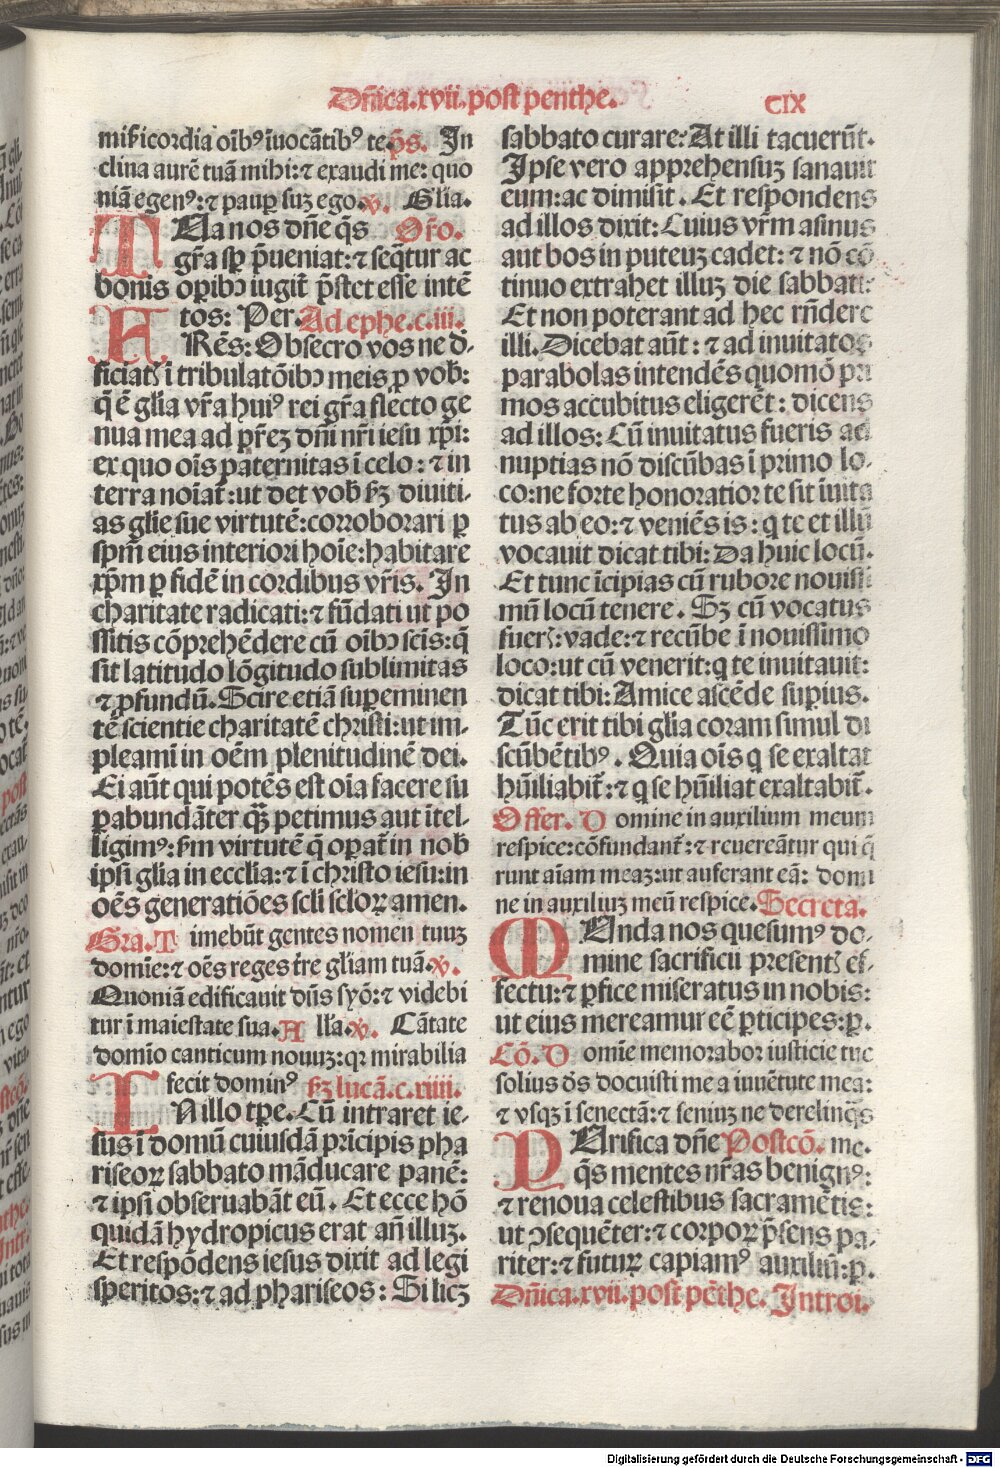 Dñica.xvii.post penthe.
CIX
miẜicordia oĩbꝰ ĩuocãtibꝰ te.p̃s. In
clina aurẽ tuã mihi: ⁊ exaudi me: quo
niã egenꝰ: ⁊ pauꝑ suꝫ ego.v. Glia.
TUa nos dñe q̃s Oŕo.
gr̃a sꝑ p̃ueniat: ⁊ seq̃tur ac
bonis oꝑibꝰ iugit̃ p̃stet esse intẽ
tos: Per. Ad ephe.c.iii.
FRẽs: Obsecro vos ne d̓
ficiatꝭ ĩ tribulatõibꝰ meis ꝓ vob̃:
q̃ ẽ glĩa vr̃a huiꝰ rei gr̃a flecto ge
nua mea ad pr̃eꝫ dñi nr̃i iesu xp̃i:
ex quo oĩs paternitas ĩ celo: ⁊ in
terra noĩat̃: ut det vob̃ ẜꝫ diuiti-
as glĩe sue virtutẽ: corroborari ꝑ
spm̃ eius interiori hoĩe: habitare
xp̃m ꝑ fidẽ in cordibus vr̃is. In
charitate radicati: ⁊ fũdati ut po
ssitis cõprehẽdere cũ oĩbꝰ scĩs: q̃
sit latitudo lõgitudo sublimitas
⁊ ꝓfundũ. Scire etiã suꝑeminen
tẽ scientie charitatẽ christi: ut im-
pleamĩ in oẽm plenitudinẽ dei.
Ei aũt qui potẽs est oĩa facere su
ꝑabundãter qꝫ̃ petimus aut ĩtel-
ligimꝰ: ẜm virtutẽ q̃ oꝑat̃ in nob̃
ipsĩ glĩa in ecclĩa: ⁊ ĩ christo iesu: in
oẽs generatiões scli sclõꝝ amen.
Gra. Timebũt gentes nomen tuuꝫ
domĩe: ⁊ oẽs reges tr̃e glĩam tuã.v.
Quoniã edificauit dñs syõ: ⁊ videbi
tur ĩ maiestate sua. Allã.v. Cãtate
domĩo canticum nouuꝫ: qꝛ mirabilia
fecit dominꝰ ẜꝫ lucã.c.xiiii.
INillo tꝑe. Cũ intraret ie-
sus ĩ domũ cuiusdã pr̃incipis pha
riseoꝝ sabbato mãducare panẽ:
⁊ ipsĩ obseruabãt eũ. Et ecce hõ
quidã hydropicus erat añ illuꝫ.
Et respõdens iesus dixit ad legi
speritos: ⁊ ad phariseos: Si licꝫ
sabbato curare: At illi tacuerũt.
Ipse vero apprehensuꝫ sanauit
eum: ac dimisit. Et respondens
ad illos dixit: Cuius vr̃m asinus
aut bos in puteuꝫ cadet: ⁊ nõ cõ
tinuo extrahet illuꝫ die sabbati:
Et non poterant ad hec rñdere
illi. Dicebat aũt: ⁊ ad inuitatos
parabolas intendẽs quomõ pri
mos accubitus eligerẽt: dicens
ad illos: Cũ inuitatus fueris ad
nuptias nõ discũbas ĩ primo lo-
co: ne forte honoratior te sit ĩuita
tus ab eo: ⁊ veniẽs is: q̃ te et illũ
vocauit dicat tibi: Da huic locũ.
Et tunc ĩcipias cũ rubore nouissi
mũ locũ tenere. Sꝫ cũ vocatus
fuerꝭ: vade: ⁊ recũbe ĩ nouissimo
loco: ut cũ venerit: q̃ te inuitauit:
dicat tibi: Amice ascẽde suꝑius.
Tũc erit tibi glĩa coram simul di
scũbẽtibꝰ. Quia oĩs q̃ se exaltat
hũiliabit̃: ⁊ q̃ se hũiliat exaltabit̃.
Offer. Domine in auxilium meum
respice: cõfundant̃: ⁊ reuereãtur qui q̃
runt aĩam meaꝫ: ut auferant eã: domi
ne in auxiliuꝫ meũ respice. Secreta.
MUnda nos quesumꝰ do-
mine sacrificii presentꝭ ef-
fectu: ⁊ ꝑfice miseratus in nobis:
ut eius mereamur eẽ ꝑticipes: ꝑ.
Cõ. Domĩe memorabor iusticie tue
solius ds̃ docuisti me a iuuẽtute mea:
⁊ vsqꝫ ĩ senectã: ⁊ seniuꝫ ne derelinq̃s
PUrifica dñe Postcõ. me.
q̃s mentes nr̃as benignꝰ:
⁊ renoua celestibus sacramẽtis:
ut ↄsequẽter: ⁊ corpoꝝ p̃sens pa-
riter: ⁊ futuꝝ capiamꝰ auxiliũ: ꝑ.
Dñica.xvii. post pẽthe. Introi.
Digitalisierung gefördert durch die Deutsche Forschungsgemeinschaft - DFG